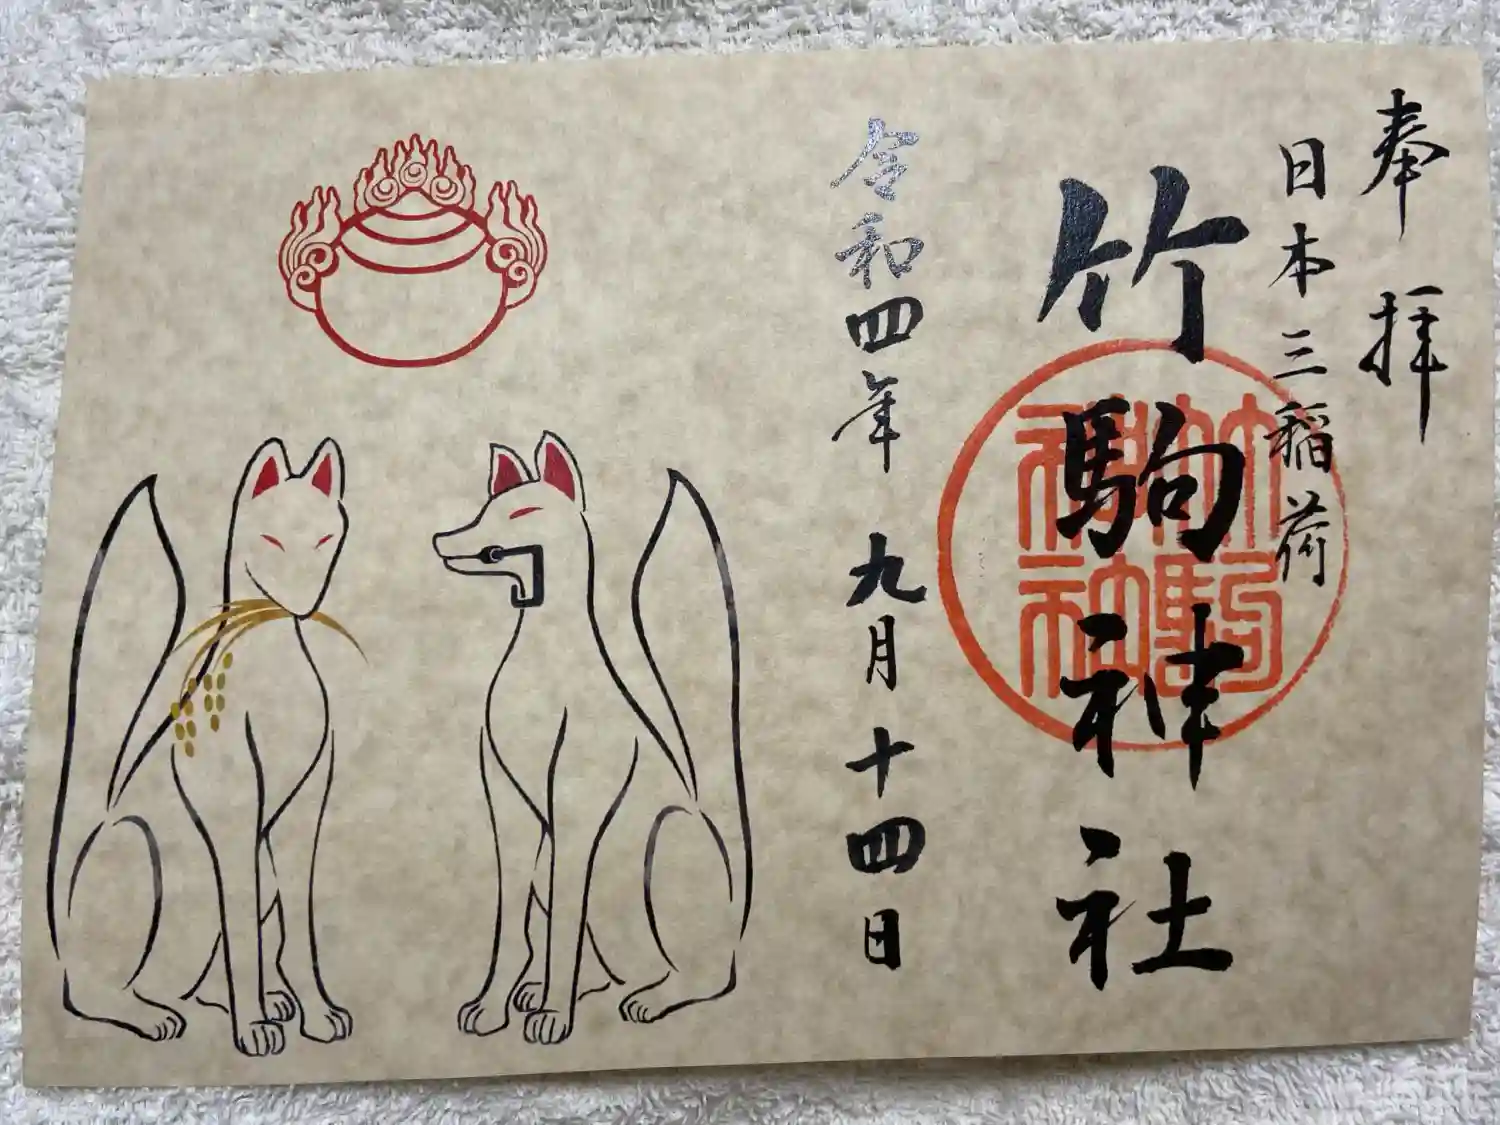 奉拝
日本三稲荷
竹駒神社
竹駒神社
令和四年 九月十四日